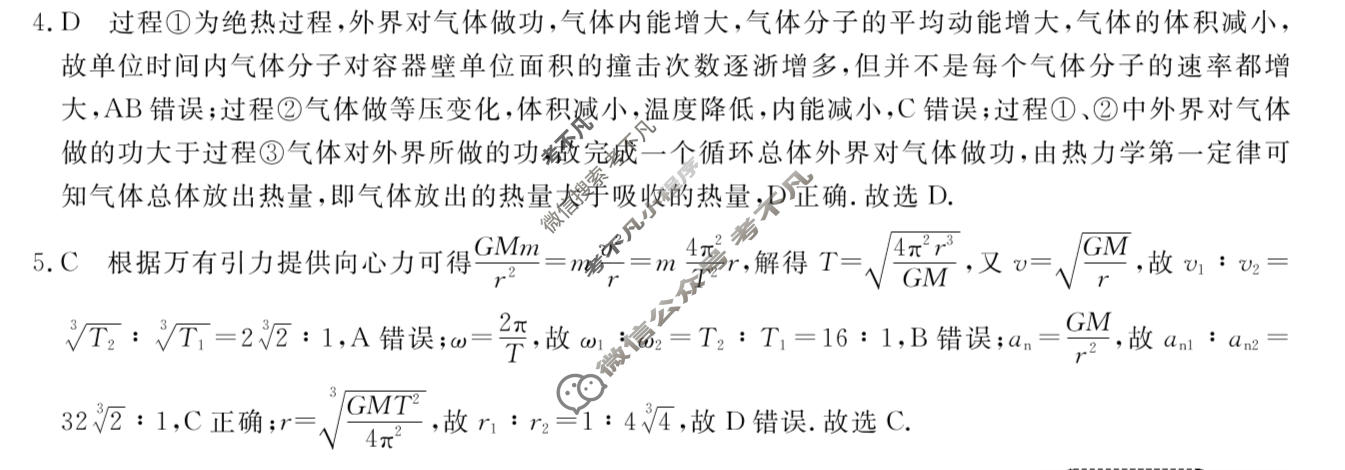 4. D 过程①为绝热过程,外界对气体做功,气体内能增大,气体分子的平均动能增大,气体的体积减小,
故单位时间内气体分子对容器壁单位面积的撞击次数逐渐增多,但并不是每个气体分子的速率都增
大,AB 错误;过程②气体做等压变化,体积减小,温度降低,内能减小,C 错误;过程①、②中外界对气体
做的功大于过程③气体对外界所做的功,故完成一个循环总体外界对气体做功,由热力学第一定律可
知气体总体放出热量,即气体放出的热量大于吸收的热量,D 正确. 故选 D.
5. C 根据万有引力提供向心力可得 \frac{GMm}{r^2}=m\frac{v^2}{r}=m\frac{4π^2}{T^2}r,解得 T=\sqrt{\frac{4π^2r^3}{GM}},又 v=\sqrt{\frac{GM}{r}},故 v_1 : v_2=
\sqrt[3]{T_2} : \sqrt[3]{T_1}=2\sqrt[3]{2} : 1,A 错误;ω=\frac{2π}{T},故 ω_1 : ω_2=T_2 : T_1=16 : 1,B 错误;a_n=\frac{GM}{r^2},故 a_{n1} : a_{n2}=
32\sqrt[3]{2} : 1,C 正确;r=\sqrt[3]{\frac{GMT^2}{4π^2}},故 r_1 : r_2=1 : 4\sqrt[3]{4},故 D 错误. 故选 C.
考不凡
微信搜索 考不凡
考不凡小程序
微信公众号 考不凡